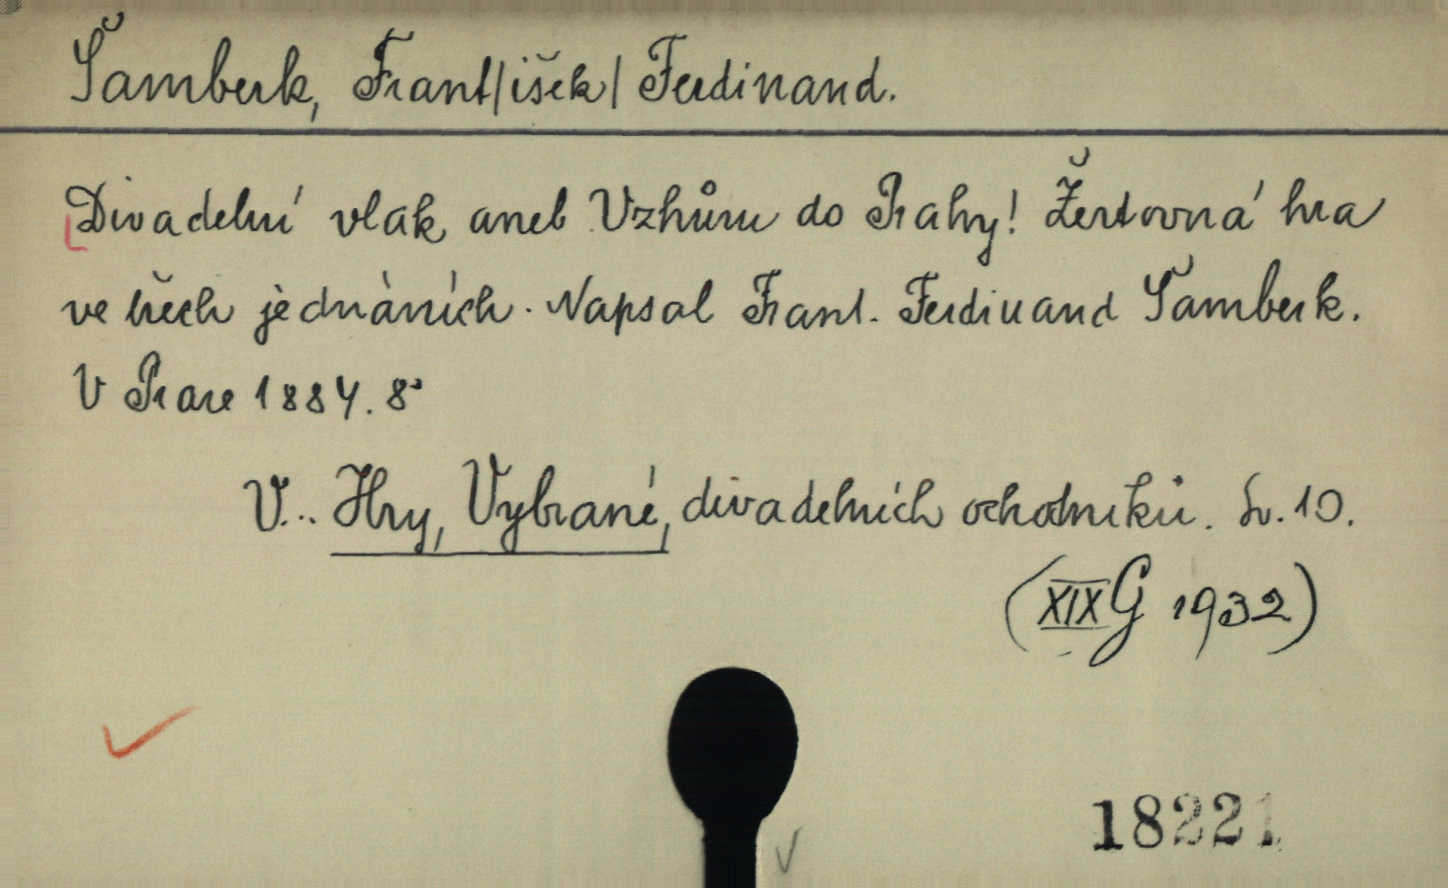 Šamberk, Frant/išek/ Ferdinand.
Divadelní vlak aneb Vzhůru do Prahy! Žertovná hra
ve třech jednáních. Napsal Frant. Ferdinand Šamberk.
V Praze 1884. 8°
V.. Hry, Vybrané, divadelních ochotníků. Sv. 10.
(XIX G 1932)
18221